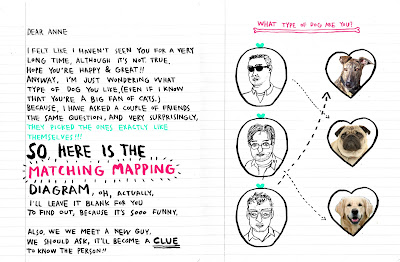 DEAR ANNE
I FELT LIKE I HAVEN'T SEEN YOU FOR A VERY
LONG TIME, ALTHOUGH IT'S NOT TRUE.
HOPE YOU'RE HAPPY & GREAT!!
ANYWAY, I'M JUST WONDERING WHAT
TYPE OF DOG YOU LIKE, (EVEN IF I KNOW
THAT YOU'RE A BIG FAN OF CATS.)
BECAUSE, I HAVE ASKED A COUPLE OF FRIENDS
THE SAME QUESTION, AND VERY SURPRISINGLY,
THEY PICKED THE ONES EXACTLY LIKE
THEMSELVES!!!
SO HERE IS THE
MATCHING MAPPING
DIAGRAM, OH, ACTUALLY,
I'LL LEAVE IT BLANK FOR YOU
TO FIND OUT, BECAUSE IT'S SOOO FUNNY.
ALSO, WE WE MEET A NEW GUY,
WE SHOULD ASK, IT'LL BECOME A CLUE
TO KNOW THE PERSON!!
WHAT TYPE OF DOG ARE YOU?